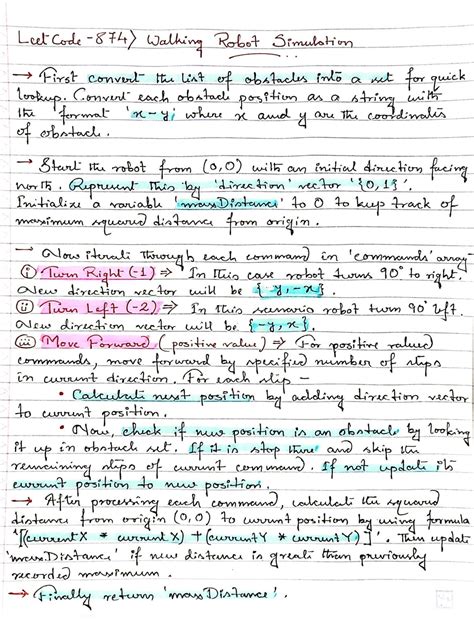 LeetCode -874) Walking Robot Simulation
→ First convert the list of obstacles into a set for quick
lookup. Convert each obstacle position as a string with
the format 'x-y', where x and y are the coordinates
of obstacle.
→ Start the robot from (0,0) with an initial direction facing
north. Represent this by 'direction' vector '{0,1}'.
Initialize a variable 'maxDistance' to 0 to keep track of
maximum squared distance from origin.
→ Now iterate through each command in 'commands' array-
(i) Turn Right (-1) ⇒ In this case robot turns 90° to right.
New direction vector will be {y,-x}.
(ii) Turn Left (-2) ⇒ In this scenario robot turns 90° left.
New direction vector will be {-y,x}.
(iii) Move Forward (positive value) ⇒ For positive valued
commands, move forward by specified number of steps
in current direction. For each step -
• Calculate next position by adding direction vector
to current position.
• Now, check if new position is an obstacle by looking
it up in obstacle set. If it is stop there and skip the
remaining steps of current command. If not update its
current position to new position.
→ After processing each command, calculate the squared
distance from origin (0,0) to current position by using formula
'[(currentX * currentX) + (currentY * currentY)]'. Then update
'maxDistance' if new distance is greater than previously
recorded maximum.
→ Finally return 'maxDistance'.